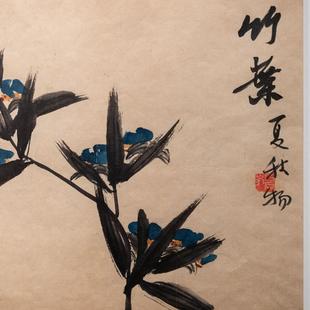 竹葉
夏秋物